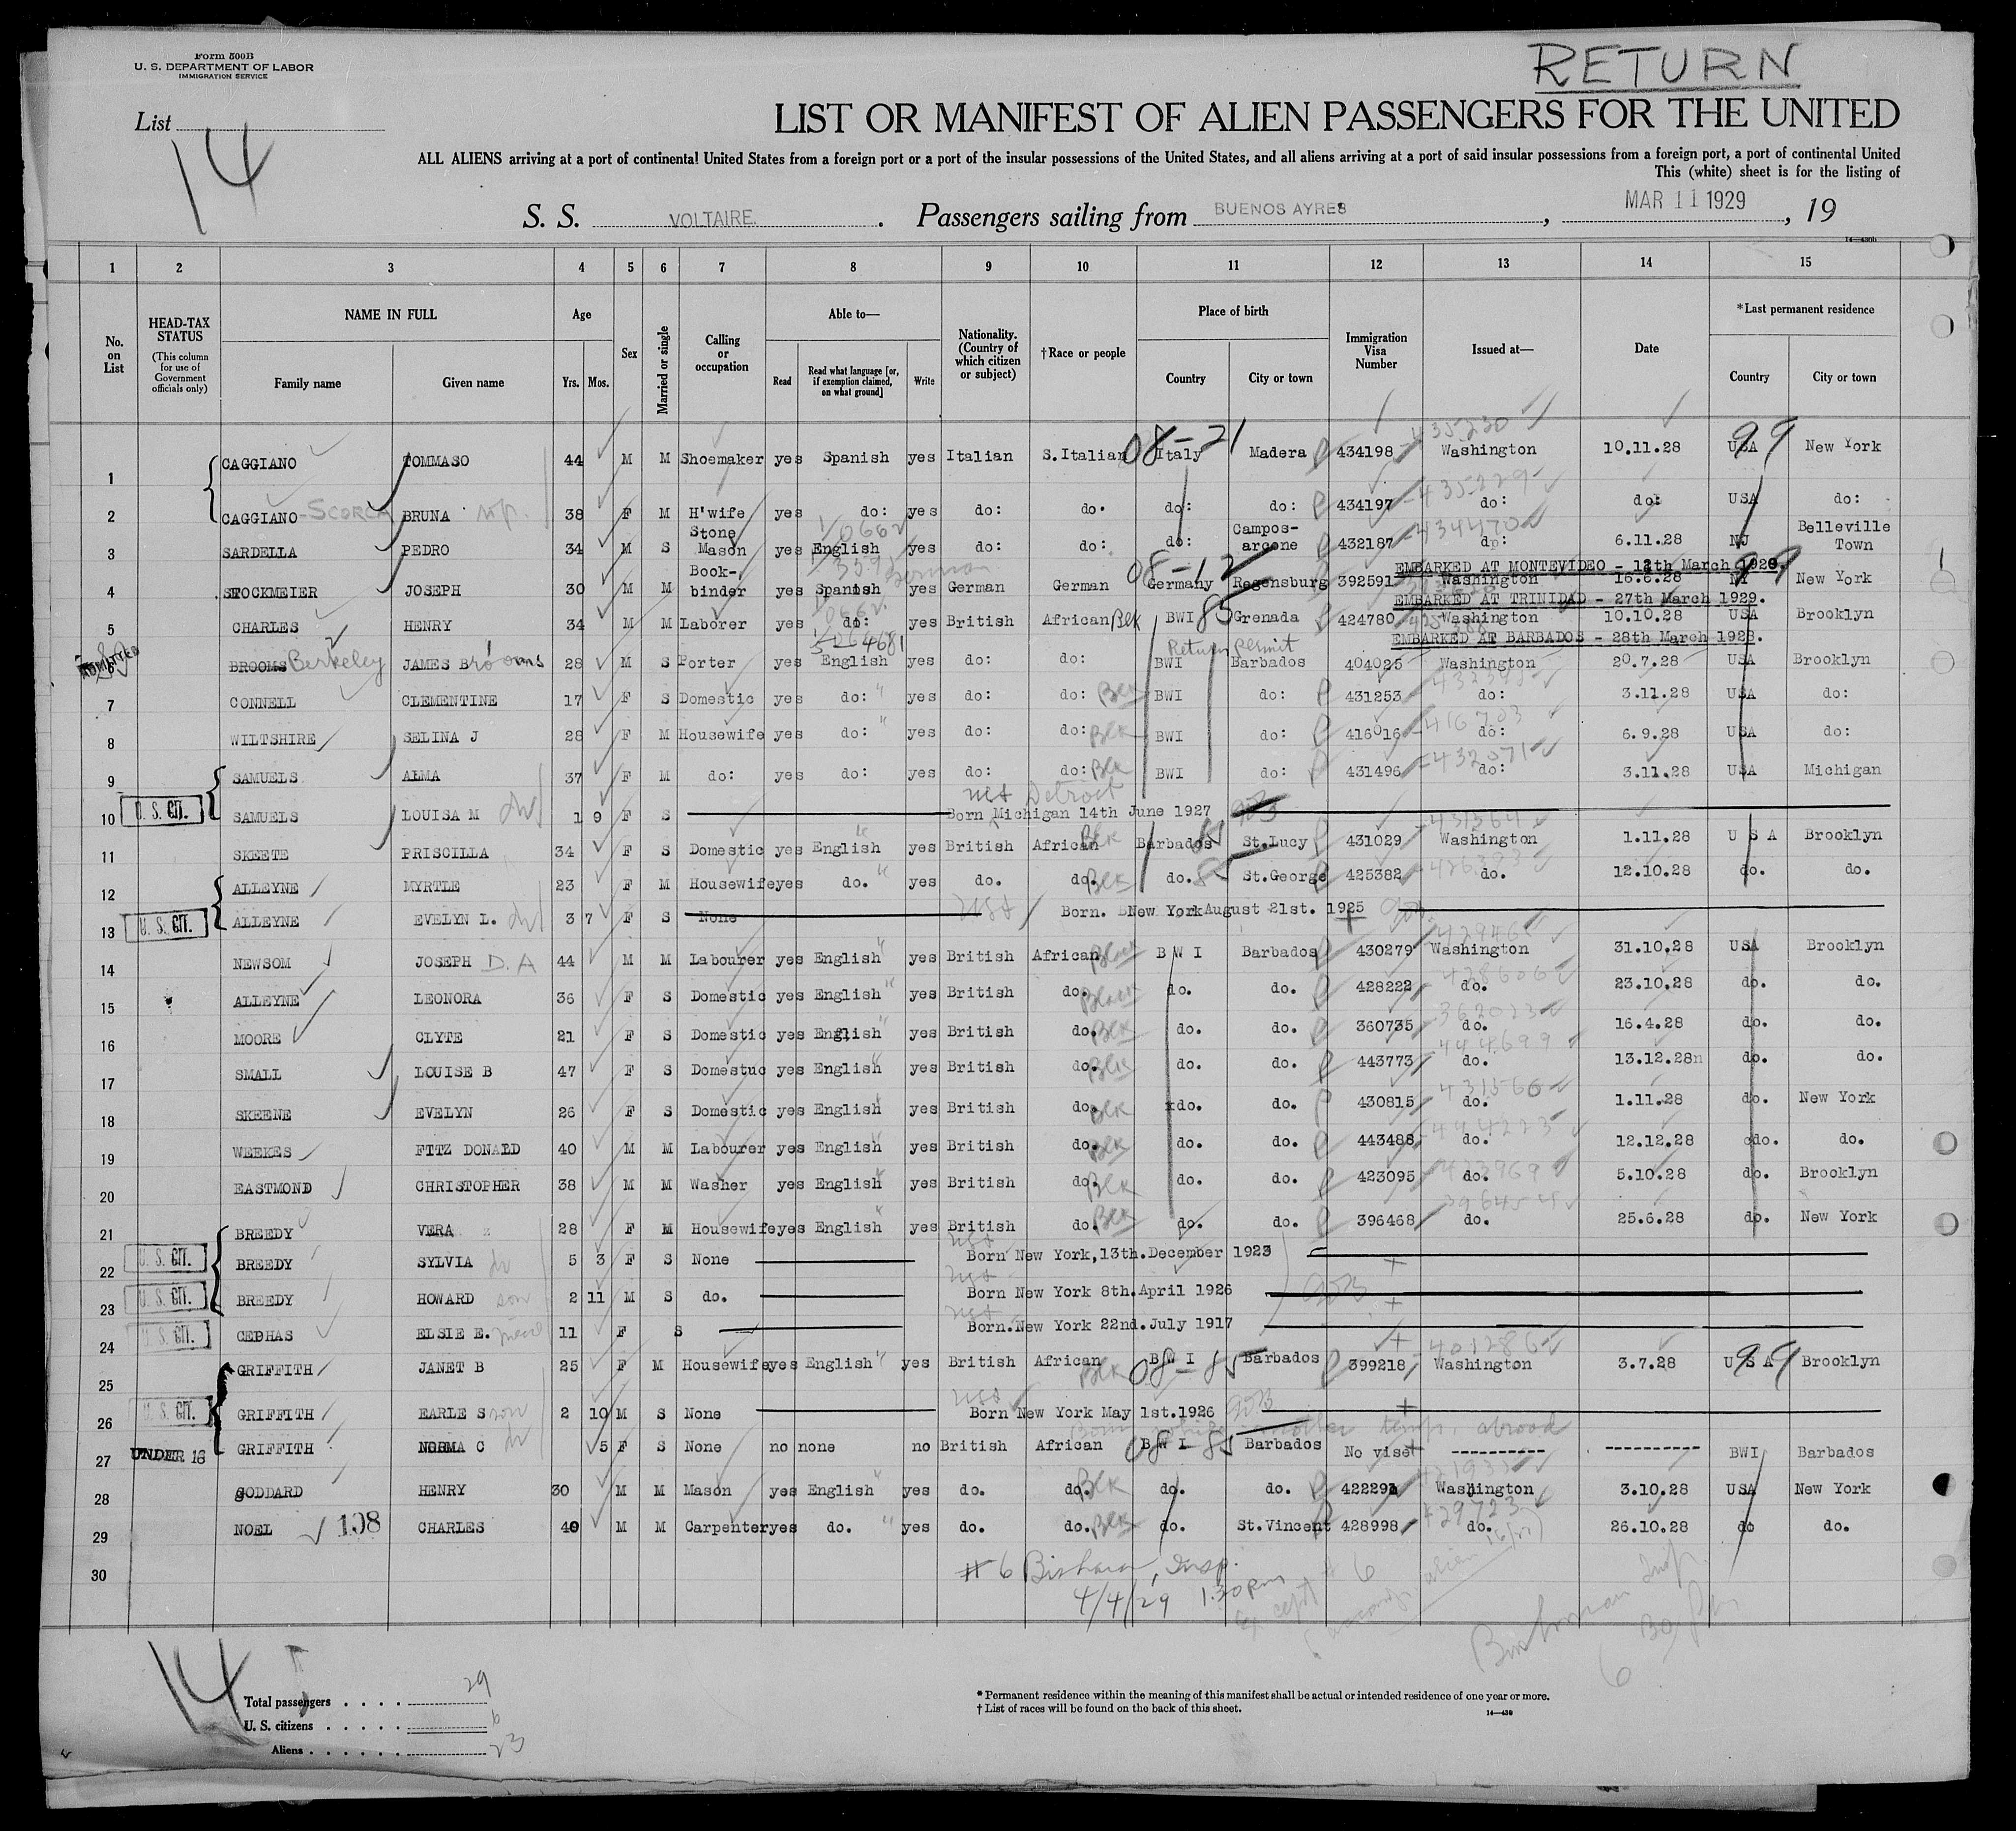 Form 500B
U. S. DEPARTMENT OF LABOR
IMMIGRATION SERVICE
RETURN
List
14
LIST OR MANIFEST OF ALIEN PASSENGERS FOR THE UNITED
ALL ALIENS arriving at a port of continental United States from a foreign port or a port of the insular possessions of the United States, and all aliens arriving at a port of said insular possessions from a foreign port, a port of continental United
This (white) sheet is for the listing of
S. S. VOLTAIRE. Passengers sailing from BUENOS AYRES, MAR 11 1929, 19
14—430b
1 2 3 4 5 6 7 8 9 10 11 12 13 14 15
No. on List
HEAD-TAX STATUS (This column for use of Government officials only)
NAME IN FULL
Family name Given name
Age
Yrs. Mos.
Sex
Married or single
Calling or occupation
Able to—
Read Read what language [or, if exemption claimed, on what ground] Write
Nationality. (Country of which citizen or subject)
†Race or people
Place of birth
Country City or town
Immigration Visa Number
Issued at—
Date
*Last permanent residence
Country City or town
1 CAGGIANO TOMMASO 44 M M Shoemaker yes Spanish yes Italian S.Italian 08-21 Italy Madera 434198 435230 Washington 10.11.28 USA 99 New York
2 CAGGIANO-SCORCA BRUNA 38 F M H'wife yes do: yes do: do. do: do: 434197 435229 do: do: USA do:
3 SARDELLA PEDRO 34 M S Stone Mason yes English yes do: do: do: Campos-arcone 432187 434470 do: 6.11.28 NJ Belleville Town
EMBARKED AT MONTEVIDEO - 12th March 1929.
4 STOCKMEIER JOSEPH 30 M M Book-binder yes Spanish German yes German German 08-12 Germany Regensburg 392591 Washington 16.6.28 NY 99 New York
EMBARKED AT TRINIDAD - 27th March 1929.
5 CHARLES HENRY 34 M M Laborer yes do: yes British African Blk BWI 85 Grenada 424780 Washington 10.10.28 USA Brooklyn
EMBARKED AT BARBADOS - 28th March 1929.
Return Permit
6 ADMITTED BROOMS Berkeley JAMES Brooms 28 M S Porter yes English yes do: do: BWI Barbados 404025 Washington 20.7.28 USA Brooklyn
7 CONNELL CLEMENTINE 17 F S Domestic yes do: yes do: do: Blk BWI do: 431253 do: 3.11.28 USA do:
8 WILTSHIRE SELINA J 28 F M Housewife yes do: yes do: do: Blk BWI do: 416016 416703 do: 6.9.28 USA do:
9 SAMUELS ALMA 37 F M do: yes do: yes do: do: Blk BWI do: 431496 432071 do: 3.11.28 USA Michigan
10 U. S. CIT. SAMUELS LOUISA M 1 9 F S USA Detroit Born Michigan 14th June 1927
11 SKEETE PRISCILLA 34 F S Domestic yes English yes British African Blk Barbados St.Lucy 431029 431564 Washington 1.11.28 U S A Brooklyn
12 ALLEYNE MYRTLE 23 F M Housewife yes do. yes do. do. Blk do. 85 St.George 425382 do. 12.10.28 do. do.
13 U. S. CIT. ALLEYNE EVELYN L. 3 7 F S None USA Born. New York August 21st. 1925
14 NEWSOM JOSEPH D.A 44 M M Labourer yes English yes British African Black B W I Barbados 430279 Washington 31.10.28 USA Brooklyn
15 ALLEYNE LEONORA 36 F S Domestic yes English yes British do. Black do. do. 428222 do. 23.10.28 do. do.
16 MOORE CLYTE 21 F S Domestic yes English yes British do. Blk do. do. 360735 362023 do. 16.4.28 do. do.
17 SMALL LOUISE B 47 F S Domestuc yes English yes British do. Blk do. do. 443773 444699 do. 13.12.28 do. do.
18 SKEENE EVELYN 26 F S Domestic yes English yes British do. Blk do. do. 430815 431566 do. 1.11.28 do. New York
19 WEEKES FITZ DONALD 40 M M Labourer yes English yes British do. Blk do. do. 443488 444223 do. 12.12.28 do. do.
20 EASTMOND CHRISTOPHER 38 M M Washer yes English yes British do. Blk do. do. 423095 423969 do. 5.10.28 do. Brooklyn
21 BREEDY VERA 28 F M Housewife yes English yes British do. Blk do. do. 396468 do. 25.6.28 do. New York
22 U. S. CIT. BREEDY SYLVIA 5 3 F S None USA Born New York, 13th. December 1923
23 U. S. CIT. BREEDY HOWARD son 2 11 M S do. USA Born New York 8th. April 1926
24 U. S. CIT. CEPHAS ELSIE E. niece 11 F S USA Born. New York 22nd. July 1917
25 GRIFFITH JANET B 25 F M Housewife yes English yes British African Blk 08-85 B W I Barbados 399218 401286 Washington 3.7.28 U S A 99 Brooklyn
26 U. S. CIT. GRIFFITH EARLE S son 2 10 M S None USA Born New York May 1st.1926
Born while mother temp. abroad
27 UNDER 16 GRIFFITH NORMA C 5 F S None no none no British African 08-85 B W I Barbados No vise BWI Barbados
28 GODDARD HENRY 30 M M Mason yes English yes do. do. Blk do. do. 422292 Washington 3.10.28 USA New York
29 NOEL 108 CHARLES 40 M M Carpenter yes do. yes do. do. Blk do. St.Vincent 428998 429723 do. 26.10.28 do do.
30
# 6 Insp.
4/4/29 1.30 pm
14
Total passengers 29
U. S. citizens 6
Aliens 23
* Permanent residence within the meaning of this manifest shall be actual or intended residence of one year or more.
† List of races will be found on the back of this sheet.
14—430